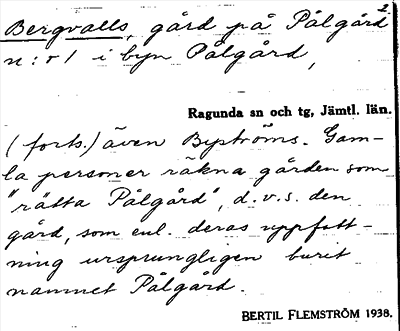 2.
Bergvalls, gård på Pålgård
n:r 1 i byn Pålgård,
Ragunda sn och tg, Jämtl. län.
(forts.) även Byströms. Gam-
la personer räkna gården som
"rätta Pålgård", d.v.s. den
gård, som enl. deras uppfatt-
ning ursprungligen burit
namnet Pålgård.
BERTIL FLEMSTRÖM 1938.